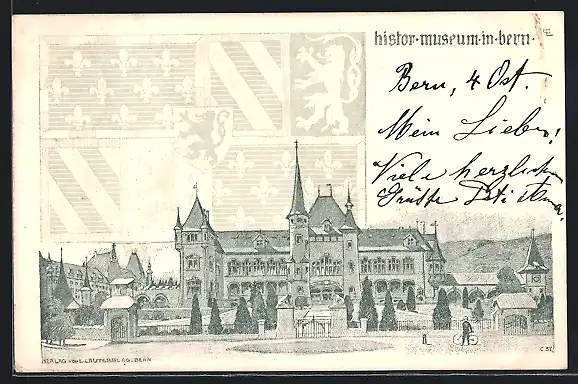 histor·museum·in·bern·
Bern, 4 Oct.
Mein Lieber!
Viele herzliche
Grüsse
VERLAG VON E. LAUTERBURG-BERN